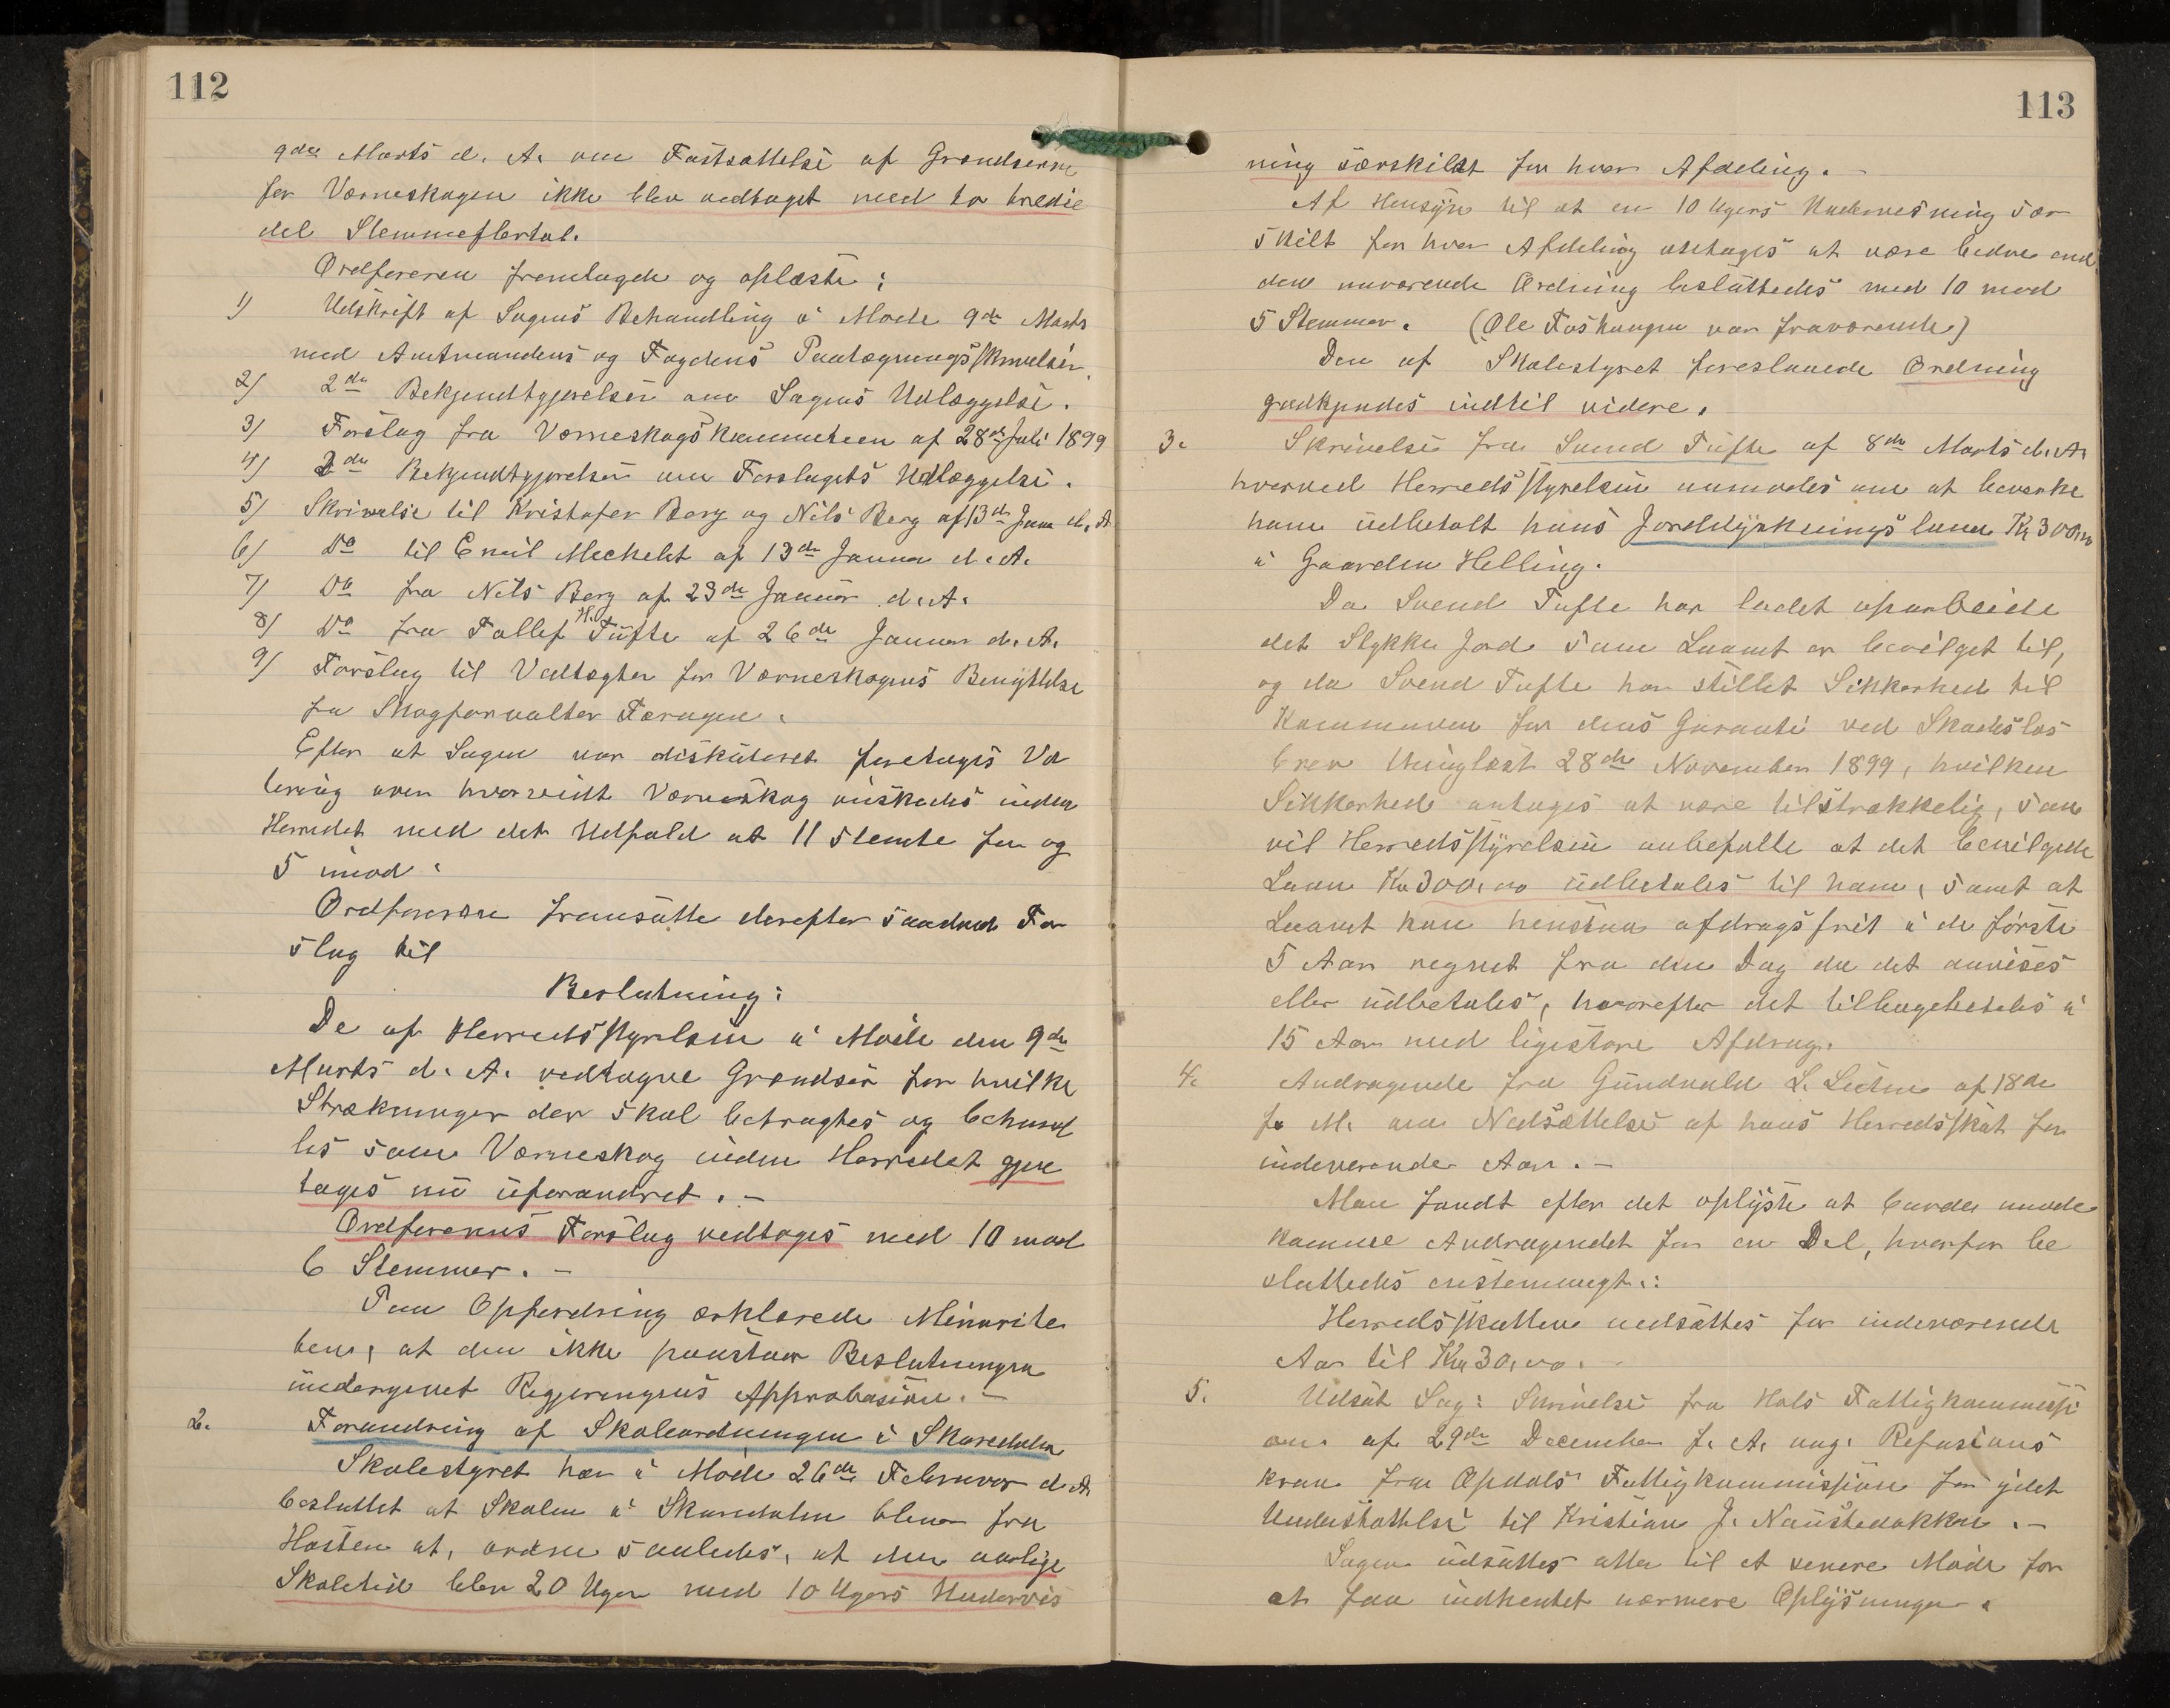 112
9de Marts d. A. om Fastsættelse af Grændserne
for Værneskogen ikke blev vedtaget med to tredie
del Stemmeflertal.
Ordføreren fremlagde og oplæste:
1) Udskrift af Sagens Behandling i Møde 9de Marts
med Amtmandens og Fogdens Paategningsskrivelser.
2) 2de Bekjendtgjørelser om Sagens Udlæggelse.
3) Forslag fra Værneskogskommiteen af 28de Juli 1899
4) 2de Bekjendtgjørelser om Forslagets Udlæggelse.
5) Skrivelse til Kristofer Berg og Nils Berg af 13de Janu d. A
6) Do til Emil Mechelet af 13de Januar d. A.
7) Do fra Nils Berg af 23de Januar d. A.
8) Do fra Tollef H. Tufte af 26de Januar d. A.
9) Forslag til Vedtægter for Værneskogens Benyttelse
fra Skogforvalter Færagen.
Efter at Sagen var diskuteret foretages Vo
tering over hvorvidt Værneskog ønskedes inden
Herredet med det Udfald at 11 stemte for og
5 imod.
Ordføreren fremsatte derefter saadant For
slag til
Beslutning:
De af Herredsstyrelsen i Møde den 9de
Marts d. A. vedtagne Grændser for hvilke
Strækninger der skal betragtes og behand
les som Værneskog inden Herredet gjen
tages nu uforandret. –
Ordførerens Forslag vedtages med 10 mod
6 Stemmer. –
Paa Opfordring erklærede Minorite
ten, at den ikke paastaar Beslutningen
undergivet Regjeringens Approbasion. –
2. Forandring af Skoleordningen i Skuredalen
Skolestyret har i Møde 26de Februar d. A.
besluttet at Skolen i Skuredalen bliver fra
Høsten at ordne saaledes, at den aarlige
Skoletid blev 20 Uger med 10 Ugers Undervis
113
ning særskilt for hver Afdeling. –
Af Hensyn til at en 10 Ugers Undervisning sær
skilt for hver Afdeling antages at være bedre end
den nuværende Ordning besluttedes med 10 mod
5 Stemmer. (Ole Foskaugen var fraværende)
Den af Skolestyret foreslaaede Ordning
godkjendes indtil videre.
3. Skrivelse fra Svend Tufte af 8de Marts d. A.
hvorved Herredsstyrelsen anmodes om at bevirke
ham udbetalt hans Jorddyrkningslaan Kr 300,00
i Gaarden Helling.
Da Svend Tufte har ladet oparbeide
det Stykke Jord som Laanet er bevilget til,
og da Svend Tufte har stillet Sikkerhed til
Kommunen for dens Garanti ved Skadesløs
brev thinglæst 28de November 1899, hvilken
Sikkerhed antages at være tilstrækkelig, saa
vil Herredsstyrelsen anbefalle at det bevilgede
Laan Kr 300,00 udbetales til ham, samt at
Laanet kan henstaa afdragsfrit i de første
5 Aar regnet fra den Dag da det anvises
eller udbetales, hvorefter det tilbagebetales i
15 Aar med ligestore Afdrag.
4. Andragende fra Gundvald L. Lien af 18de
f. M. om Nedsættelse af hans Herredsskat for
indeværende Aar. –
Man fandt efter det oplyste at burde imøde
komme Andragendet for en Del, hvorfor be
sluttedes enstemmigt:
Herredsskatten nedsættes for indeværende
Aar til Kr 30,00.
5. Udsat Sag: Skrivelse fra Hols Fattigkommissi
on af 29de December f. A. ang. Refusions
krav fra Opdals Fattigkommission for ydet
Understøttelse til Kristian J. Naustebakken. –
Sagen udsættes atter til et senere Møde for
at faa indhentet nærmere Oplysninger.